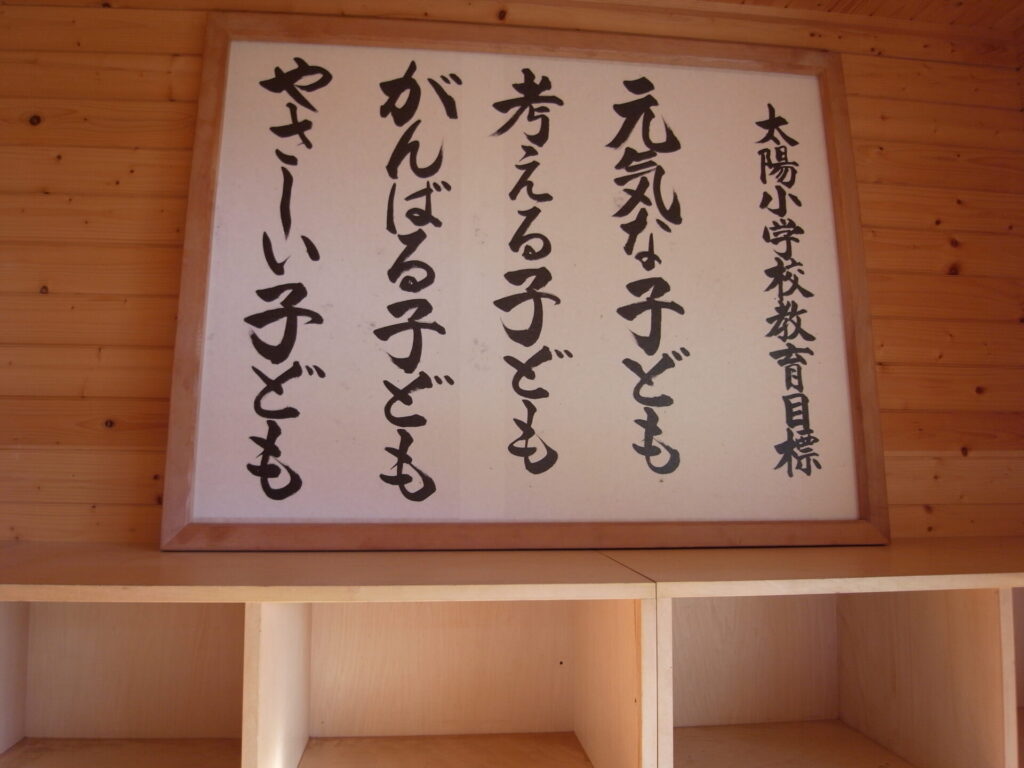 太陽小学校教育目標
元気な子ども
考える子ども
がんばる子ども
やさしい子ども